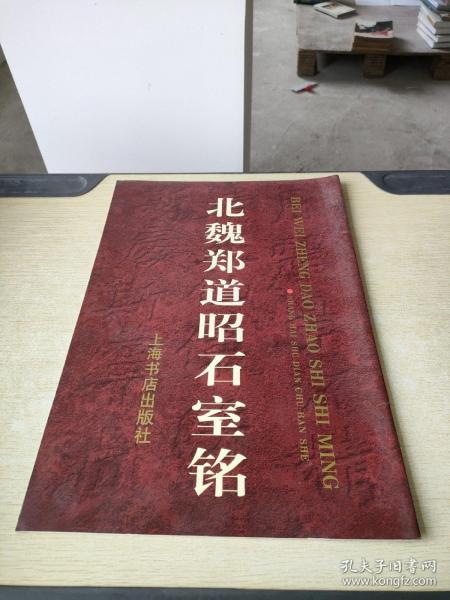 北魏郑道昭石室铭
上海书店出版社
BEI WEI ZHENG DAO ZHAO SHI SHI MING
SHANG HAI SHU DIAN CHU BAN SHE
孔夫子旧书网
www.kongfz.com